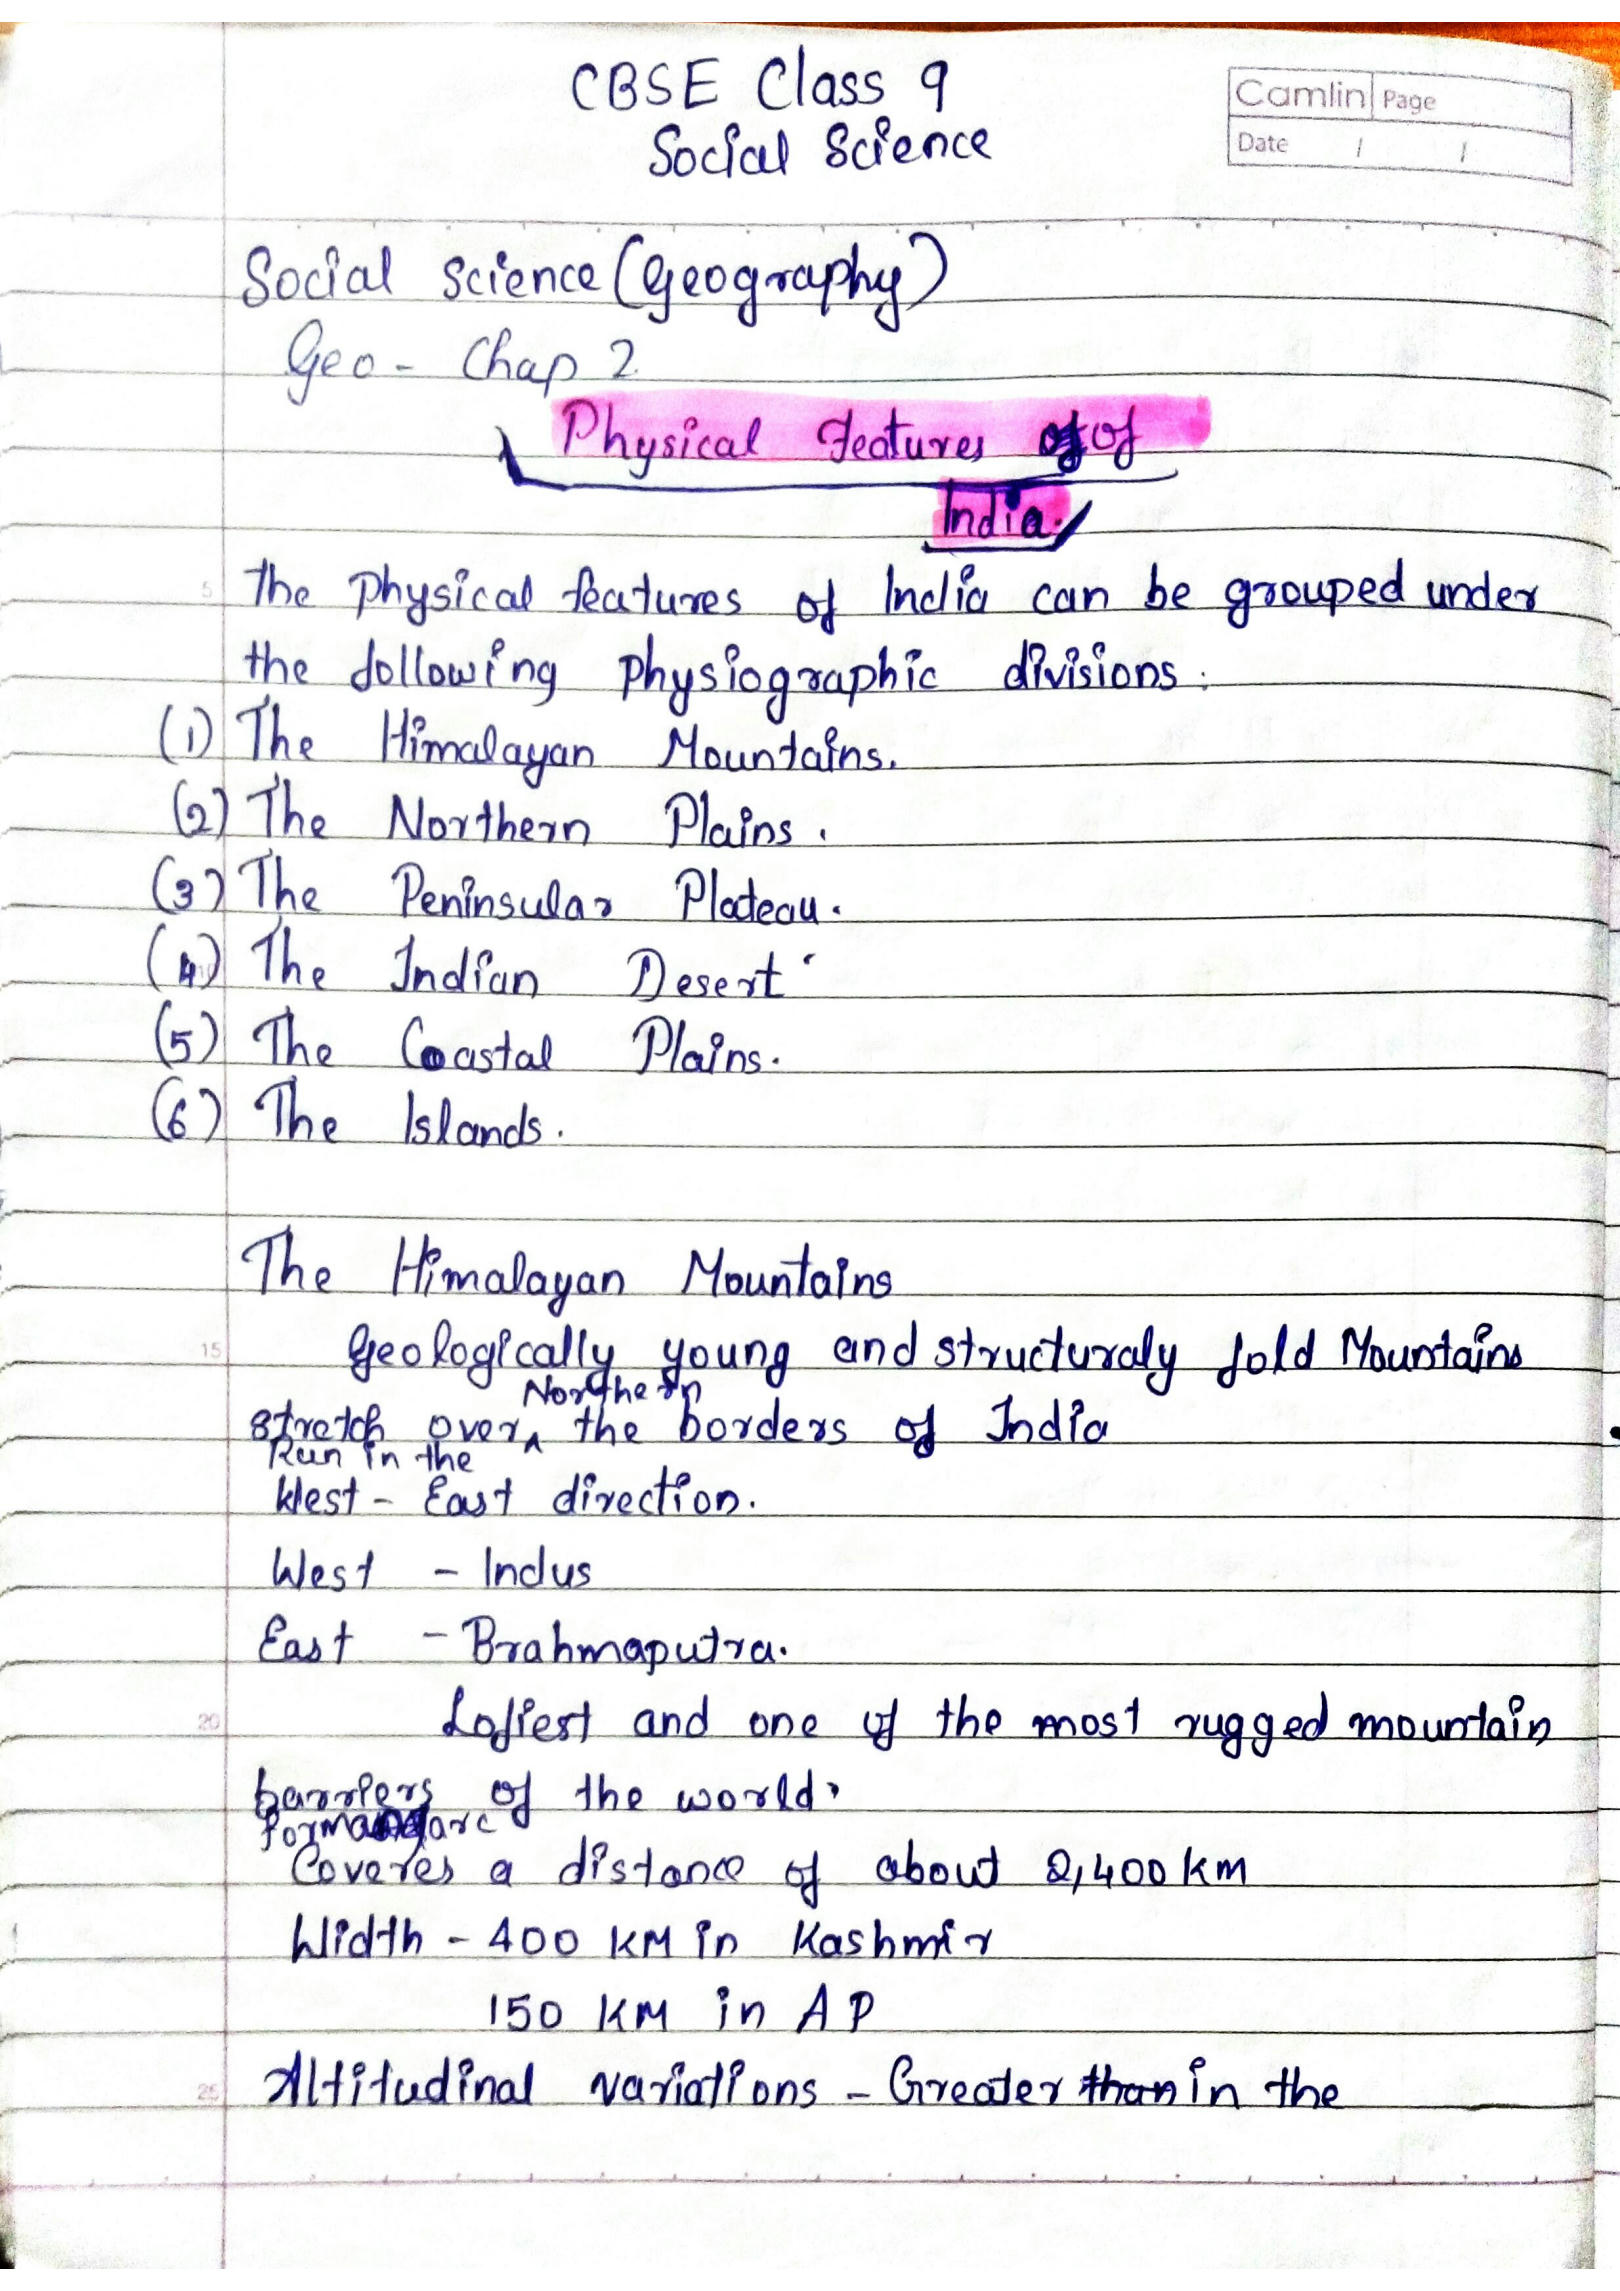 CBSE Class 9
Social Science
Camlin Page
Date / /
Social Science (Geography)
Geo - Chap 2
Physical features of of
India.
5 the Physical features of India can be grouped under
the following physiographic divisions:
(1) The Himalayan Mountains.
(2) The Northern Plains.
(3) The Peninsular Plateau.
(4) The Indian Desert
(5) The Coastal Plains.
(6) The Islands.
The Himalayan Mountains
15 Geologically young and structuraly fold Mountains
Northern
stretch over ^ the borders of India
Run in the
West - East direction.
West - Indus
East - Brahmaputra.
20 Lofiest and one of the most rugged mountain
barriers of the world.
form arc
Coveres a distance of about 2,400 KM
Width - 400 KM in Kashmir
150 KM in AP
25 Altitudinal variations - Greater than in the